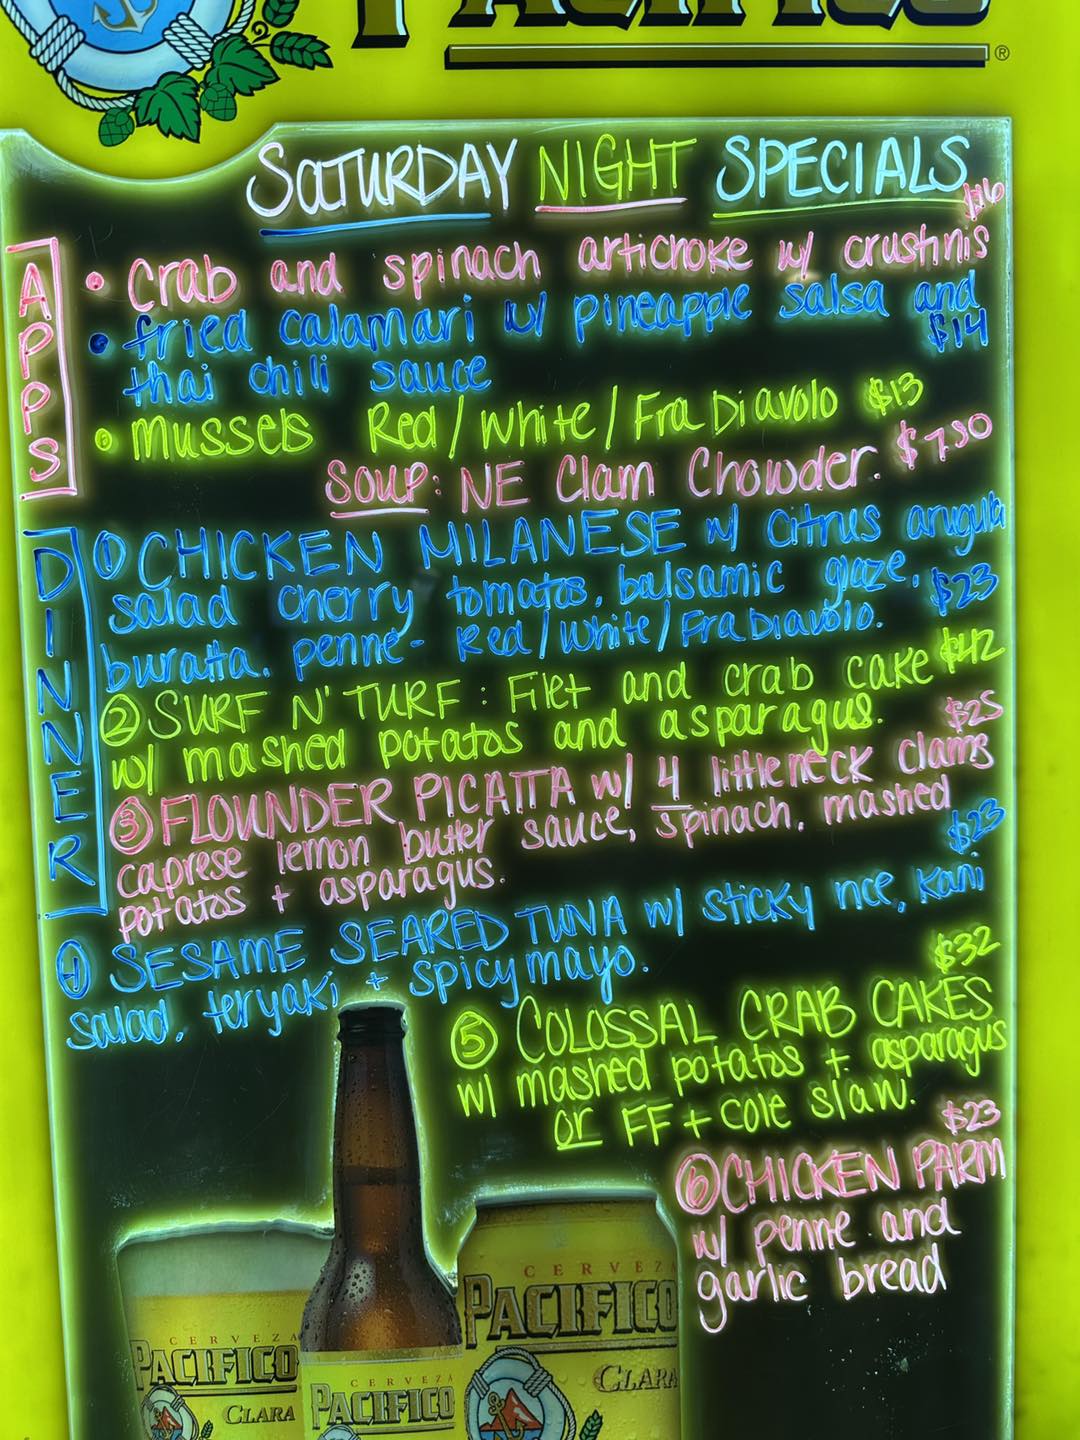 PACIFICO
®
SATURDAY NIGHT SPECIALS
$16
APPS
• Crab and spinach artichoke w/ crustinis
• fried calamari w/ pineapple salsa and
$14
thai chili sauce
• mussels Red/White/Fra Diavolo $13
SOUP: NE Clam Chowder. $7.50
DINNER
① CHICKEN MILANESE w/ citrus arugula
salad cherry tomatos, balsamic glaze,
$23
buratta. penne- Red/White/Fra Diavolo.
② SURF N' TURF: Filet and crab cake $42
w/ mashed potatos and asparagus.
$25
③ FLOUNDER PICATTA w/ 4 littleneck clams
caprese lemon butter sauce, spinach, mashed
potatos + asparagus.
$23
④ SESAME SEARED TUNA w/ sticky rice, kani
salad, teryaki, + spicy mayo.
$32
⑤ COLOSSAL CRAB CAKES
w/ mashed potatos + asparagus
or FF + cole slaw.
$23
⑥ CHICKEN PARM
w/ penne and
garlic bread
CERVEZA
PACIFICO
CLARA
CERVEZA
PACIFICO
CERVEZA
PACIFICO
CLARA